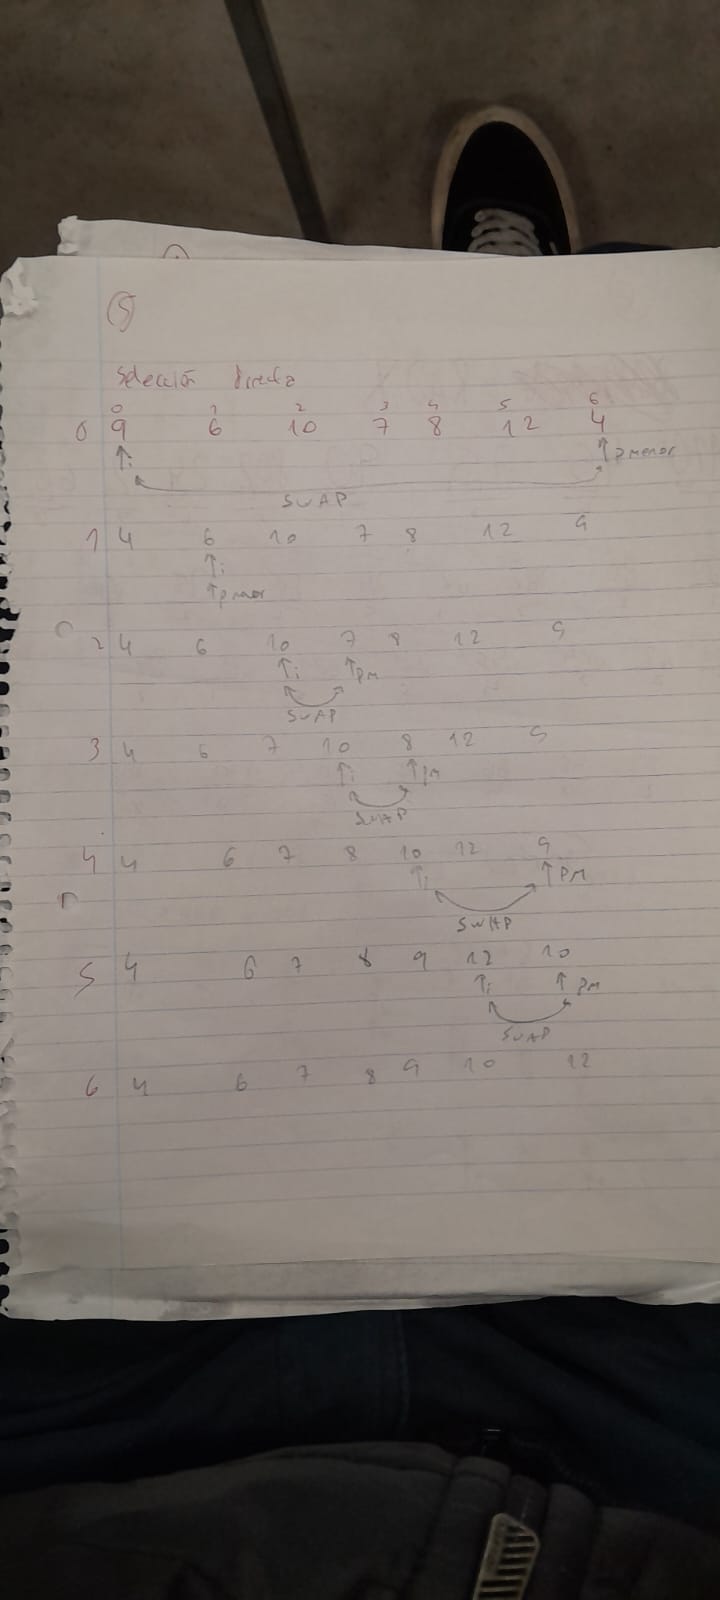 5
Selección directa
0 1 2 3 4 5 6
0 9 6 10 7 8 12 4
↑i ↑pmenor
SWAP
1 4 6 10 7 8 12 9
↑i
↑pmenor
2 4 6 10 7 8 12 9
↑i ↑PM
SWAP
3 4 6 7 10 8 12 9
↑i ↑PM
SWAP
4 4 6 7 8 10 12 9
↑i ↑PM
SWAP
5 4 6 7 8 9 12 10
↑i ↑PM
SWAP
6 4 6 7 8 9 10 12